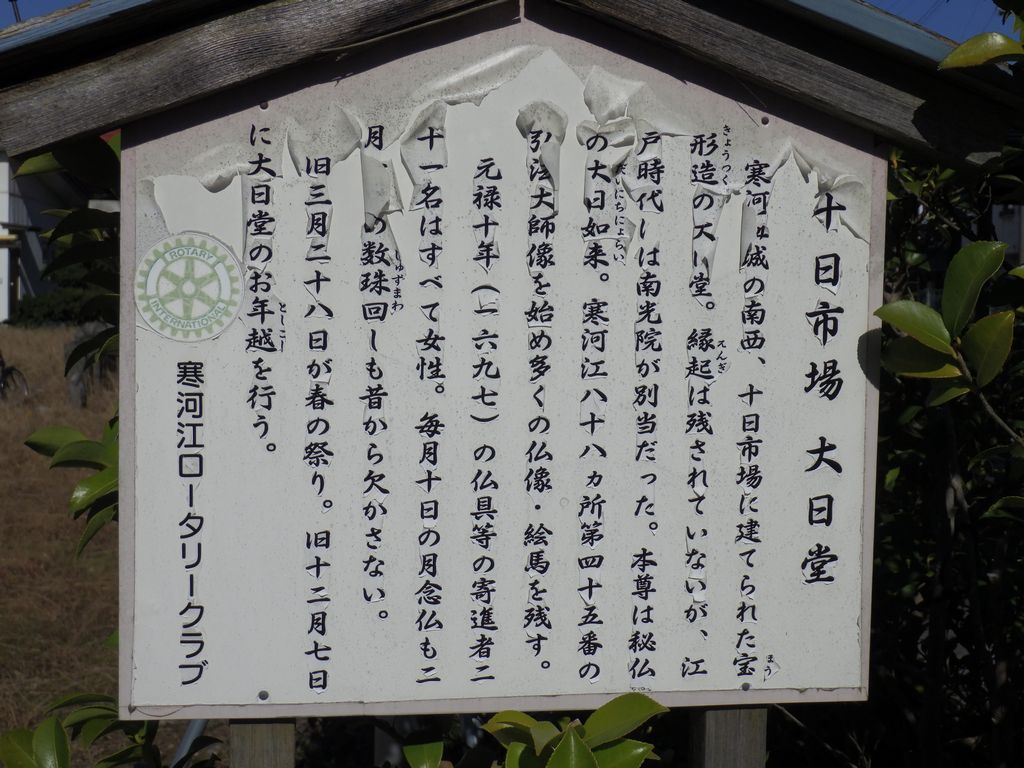 十日市場 大日堂
寒河江城の南西、十日市場に建てられた宝
形造の大日堂。縁起は残されていないが、江
戸時代には南光院が別当だった。本尊は秘仏
の大日如来。寒河江八十八ヵ所第四十五番の
弘法大師像を始め多くの仏像・絵馬を残す。
元禄十年(一六九七)の仏具等の寄進者二
十一名はすべて女性。毎月十日の月念仏も二
月の数珠回しも昔から欠かさない。
旧三月二十八日が春の祭り。旧十二月七日
に大日堂のお年越を行う。
ROTARY INTERNATIONAL
寒河江ロータリークラブ